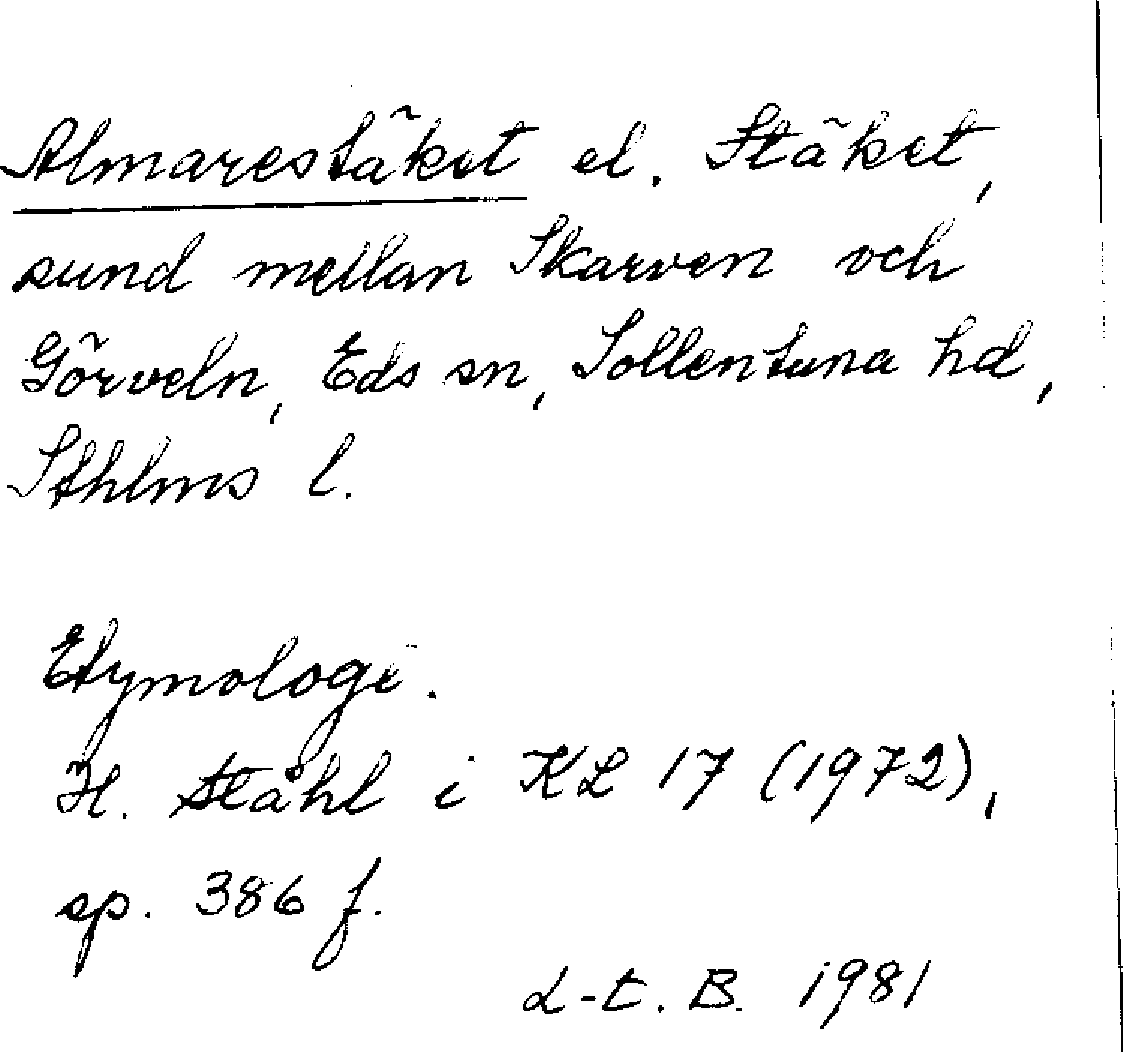 Almarestäket el. Stäket,
sund mellan Skarven och
Görveln, Eds sn, Sollentuna hd,
Sthlms l.
Etymologi.
H. Ståhl i KL 17 (1972),
sp. 386 f.
L-t. B. 1981